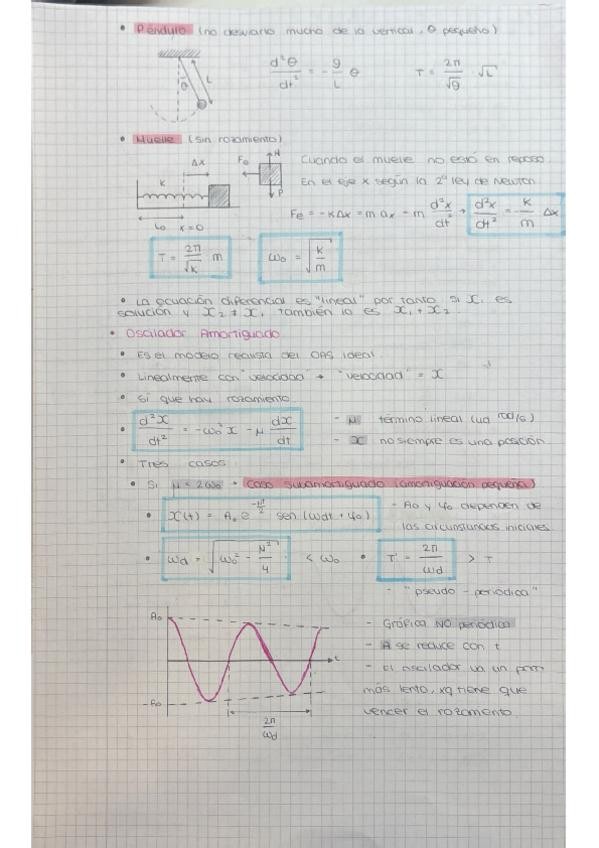 • Péndulo (no desviarlo mucho de la vertical, θ pequeño)
θ L
d²θ/dt² = - g/L θ
T = 2π/√g · √L
• Muelle (sin rozamiento)
Δx
K
L₀ x=0
Fe N P
Cuando el muelle no está en reposo.
En el eje x según la 2ª ley de Newton
Fe = -KΔx = m ax = m d²x/dt² → d²x/dt² = - K/m Δx
T = 2π/√K · m
ω₀ = √K/m
• La ecuación diferencial es "lineal" por tanto si x₁ es
solución y x₂ ≠ x₁ también lo es x₁ + x₂
• Oscilador Amortiguado
• Es el modelo realista del OAS ideal
• Linealmente con "velocidad" → "velocidad" = ẋ
• Sí que hay rozamiento
• d²x/dt² = -ω₀²x - μ dx/dt
- μ término lineal (ud rad/s)
- x no siempre es una posición
• Tres casos
• Si μ < 2ω₀ → Caso subamortiguado (amortiguación pequeña)
• x(t) = A₀ e^(-μt/2) sen (ωdt + φ₀)
- A₀ y φ₀ dependen de
las circunstancias iniciales
• ωd = √ω₀² - μ²/4 < ω₀
• T' = 2π/ωd > T
- "pseudo-periódica"
A₀
t
-A₀
2π/ωd
- Gráfica NO periódica
- A se reduce con t
- El oscilador va un pom
más lento, xq tiene que
vencer el rozamento